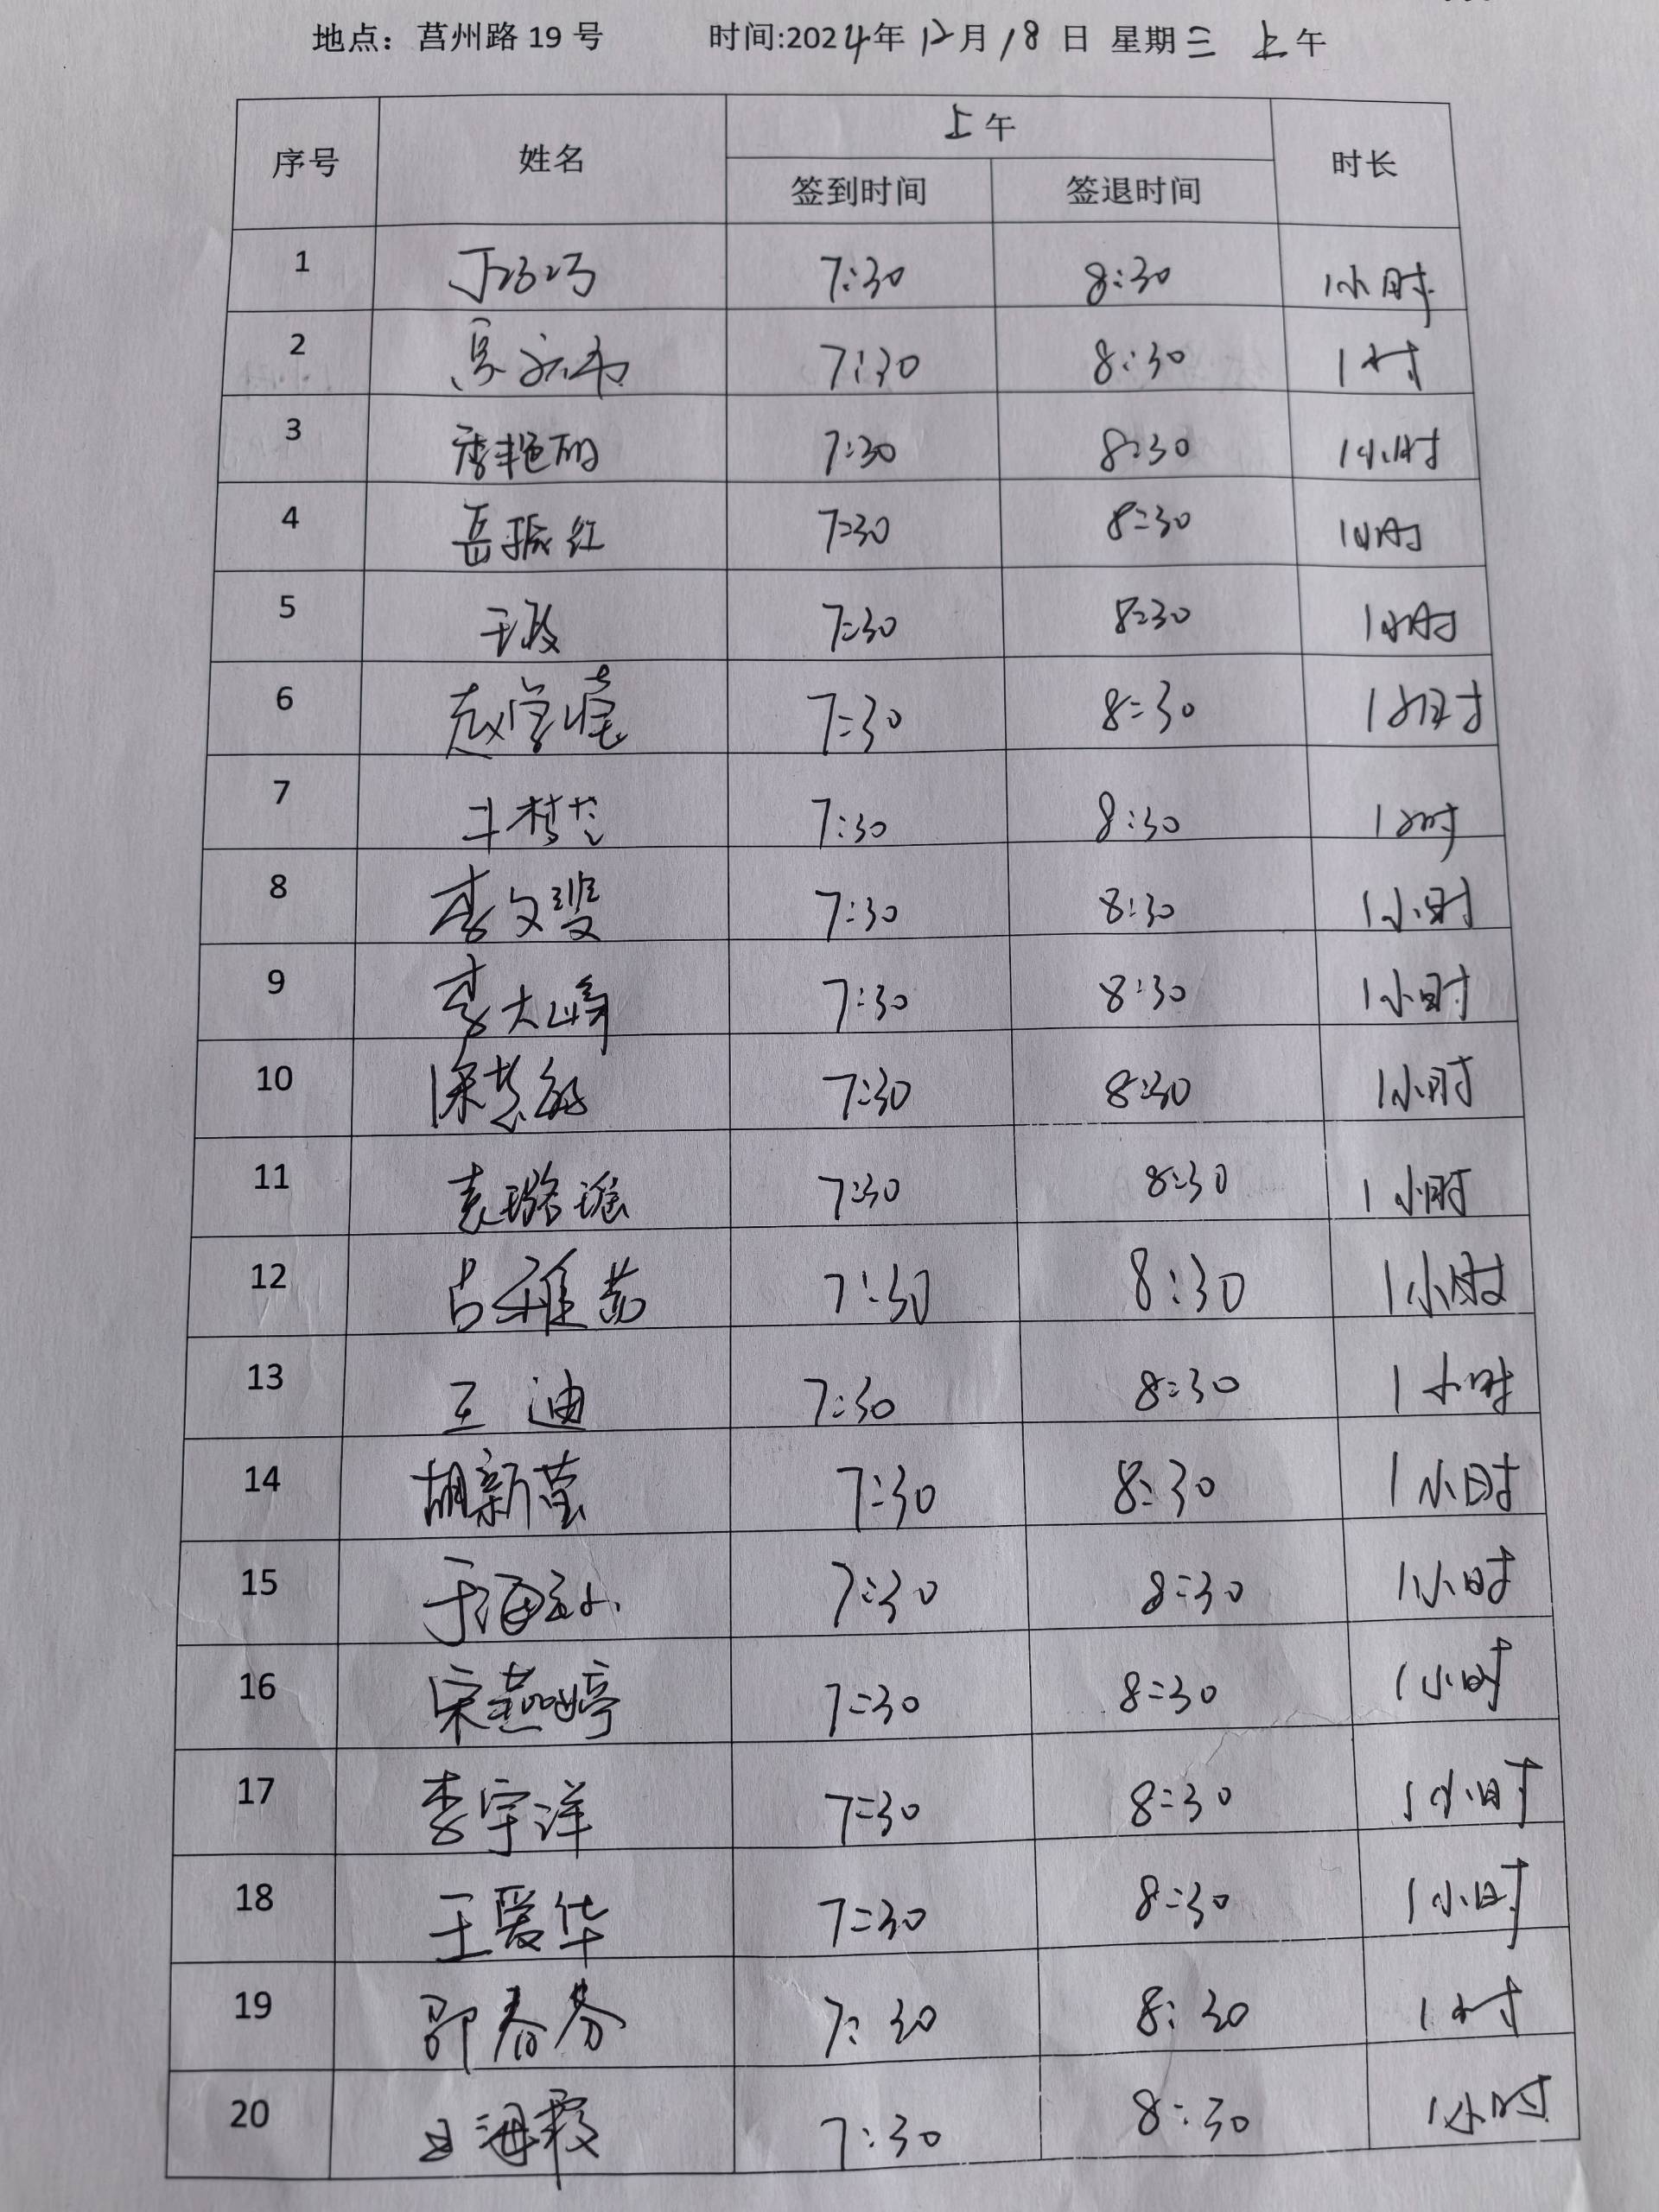 地点：莒州路 19 号 时间:2024年 12月 18 日 星期三 上午
序号 姓名 上午 时长
签到时间 签退时间
1 7:30 8:30 1小时
2 7:30 8:30 1小时
3 季艳丽 7:30 8:30 1小时
4 岳振红 7:30 8:30 1小时
5 于波 7:30 8:30 1小时
6 赵学峰 7:30 8:30 1小时
7 7:30 8:30 1小时
8 李文斐 7:30 8:30 1小时
9 李大峰 7:30 8:30 1小时
10 梁慧敏 7:30 8:30 1小时
11 袁璐瑶 7:30 8:30 1小时
12 古雅茹 7:30 8:30 1小时
13 王迪 7:30 8:30 1小时
14 胡新莹 7:30 8:30 1小时
15 7:30 8:30 1小时
16 宋燕婷 7:30 8:30 1小时
17 李宇洋 7:30 8:30 1小时
18 王爱华 7:30 8:30 1小时
19 邵春芬 7:30 8:30 1小时
20 海霞 7:30 8:30 1小时